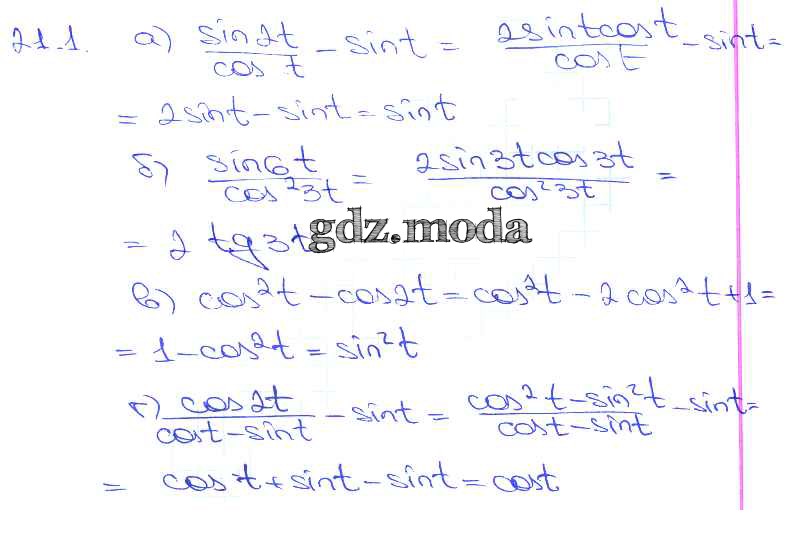 21.1. а) sin2t/cos t - sint = 2sintcost/cost - sint =
= 2sint - sint = sint
б) sin6t/cos²3t = 2sin3tcos3t/cos²3t =
= 2 tg3t
gdz.moda
в) cos²t - cos2t = cos²t - 2cos²t + 1 =
= 1 - cos²t = sin²t
г) cos2t/cost - sint - sint = cos²t - sin²t/cost - sint - sint =
= cost + sint - sint = cost